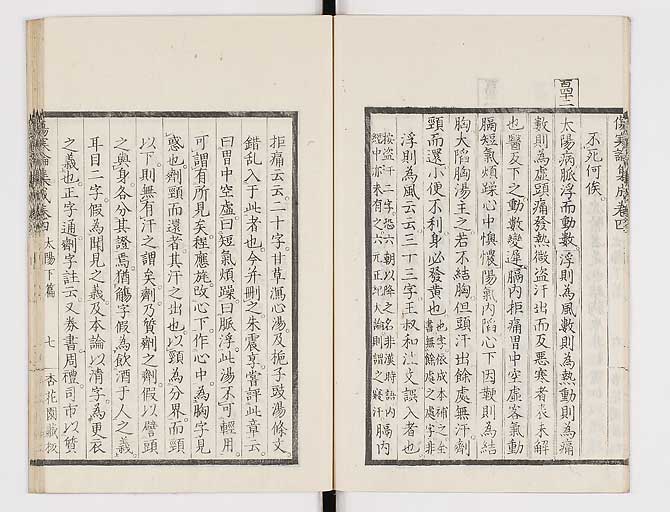 傷寒論集成卷四
不死何俟
百四十二
太陽病脉浮而動數浮則為風數則為熱動則為痛
數則為虛頭痛發熱微盜汗出而反惡寒者表未解
也醫反下之動數變遲膈內拒痛胃中空虛客氣動
膈短氣煩躁心中懊憹陽氣內陷心下因鞕則為結
胸大陷胸湯主之若不結胸但頭汗出餘處無汗劑
頸而還小便不利身必發黃也
浮則為風云云三十三字王叔和註文誤入者也
膈內
拒痛云云二十字甘草瀉心湯及梔子豉湯條文
錯乱入于此者也今并刪之朱震亨嘗評此章云
曰胃中空虛曰短氣煩躁曰脉浮此湯不可輕用
可謂有所見矣程應旄改心下作心中為胸字見
惑也劑頸而還者其汗之出也以頸為分界而頸
以下則無有汗之謂矣劑乃質劑之劑假以譬頭
之與身各分其證焉猶觴字假為飲酒于人之義
耳目二字假為聞見之義及本論以清字為更衣
之義也正字通劑字註云又券書周禮司市以質
傷寒論集成卷四 太陽下篇 七 杏花園藏板